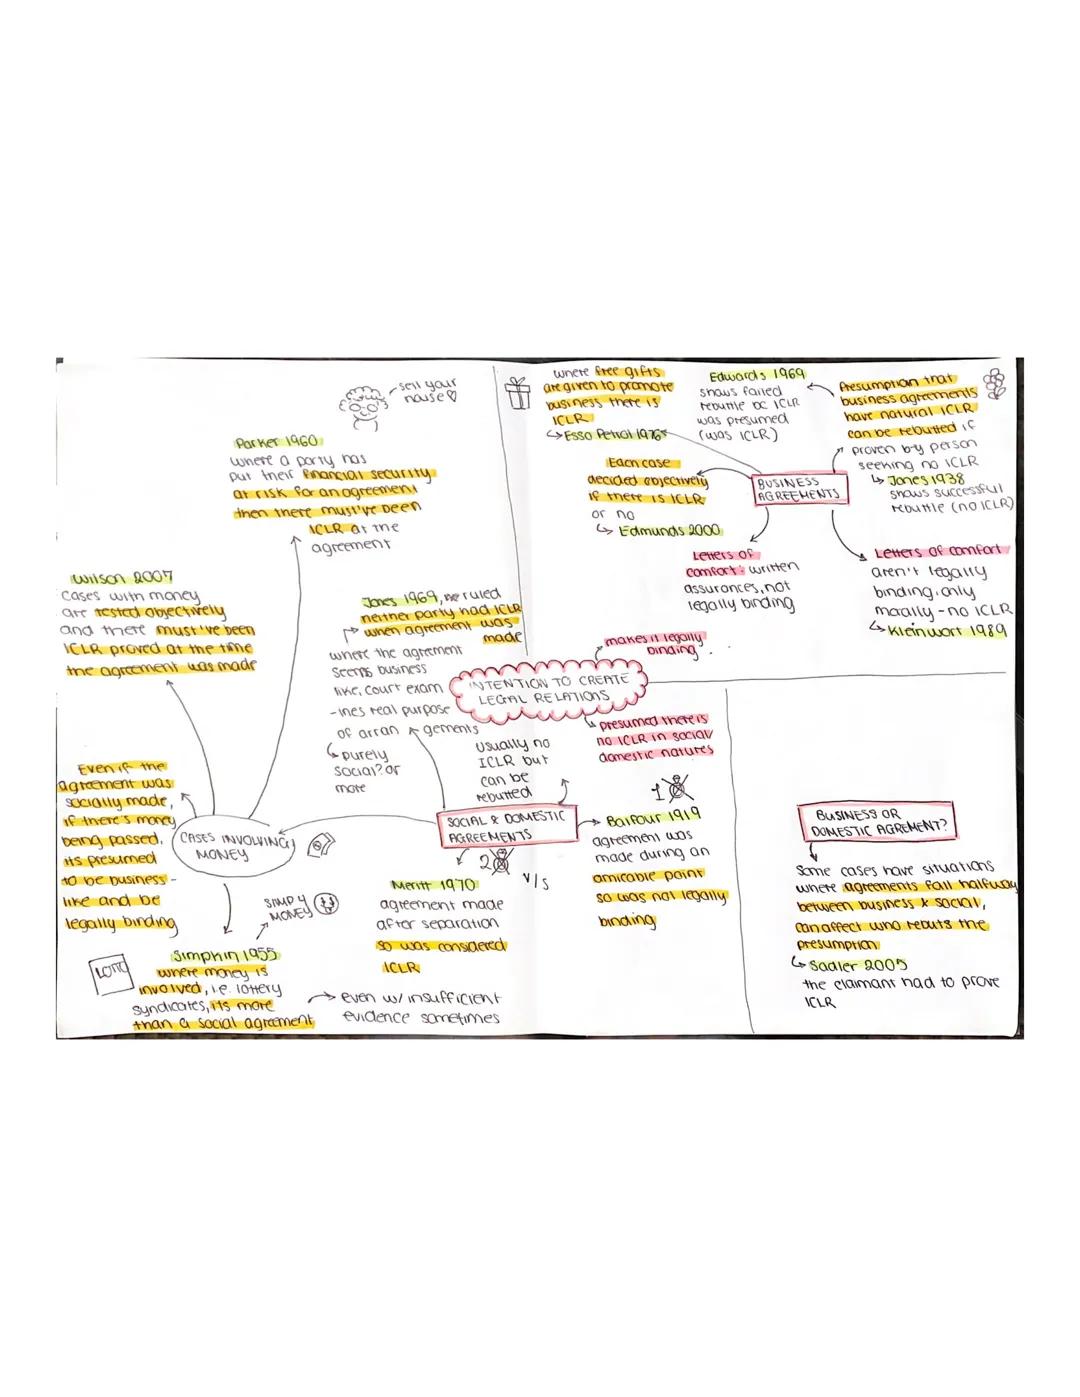 INTENTION TO CREATE
LEGAL RELATIONS
makes it legally
binding
presumed there is
no ICLR in social/
domestic natures
BUSINESS
AGREEMENTS
where free gifts
are given to promote
business there is
ICLR
Esso Petrol 1976
Edwards 1969
shows failed
rebuttle bc ICLR
was presumed
(was ICLR)
Presumption that
business agreements
have natural ICLR
can be rebutted if
proven by person
seeking no ICLR
Jones 1938
shows successful
rebuttle (no ICLR)
Each case
decided objectively
if there is ICLR
or no
Edmunds 2000
Letters of
comfort: written
assurances, not
legally binding
Letters of comfort
aren't legally
binding, only
morally - no ICLR
Kleinwort 1989
SOCIAL & DOMESTIC
AGREEMENTS
usually no
ICLR but
can be
rebutted
1
Balfour 1919
agreement was
made during an
amicable point
so was not legally
binding
V/S
2
Meritt 1970
agreement made
after separation
so was considered
ICLR
Jones 1969, we ruled
neither party had ICLR
when agreement was
made
where the agreement
seems business
like, court exam
-ines real purpose
of arran gements
purely
social? or
more
CASES INVOLVING
MONEY
sell your
house
Parker 1960
where a party has
put their financial security
at risk for an agreement
then there must've been
ICLR at the
agreement
Wilson 2007
cases with money
are tested objectively
and there must've been
ICLR proved at the time
the agreement was made
Even if the
agreement was
socially made,
if there's money
being passed,
its presumed
to be business-
like and be
legally binding
SIMP 4
MONEY
LOTTO
Simpkin 1955
where money is
involved, i.e. lottery
syndicates, its more
than a social agreement
even w/ insufficient
evidence sometimes
BUSINESS OR
DOMESTIC AGREMENT?
Some cases have situations
where agreements fall halfway
between business & social,
can affect who rebuts the
presumption
Sadler 2005
the claimant had to prove
ICLR